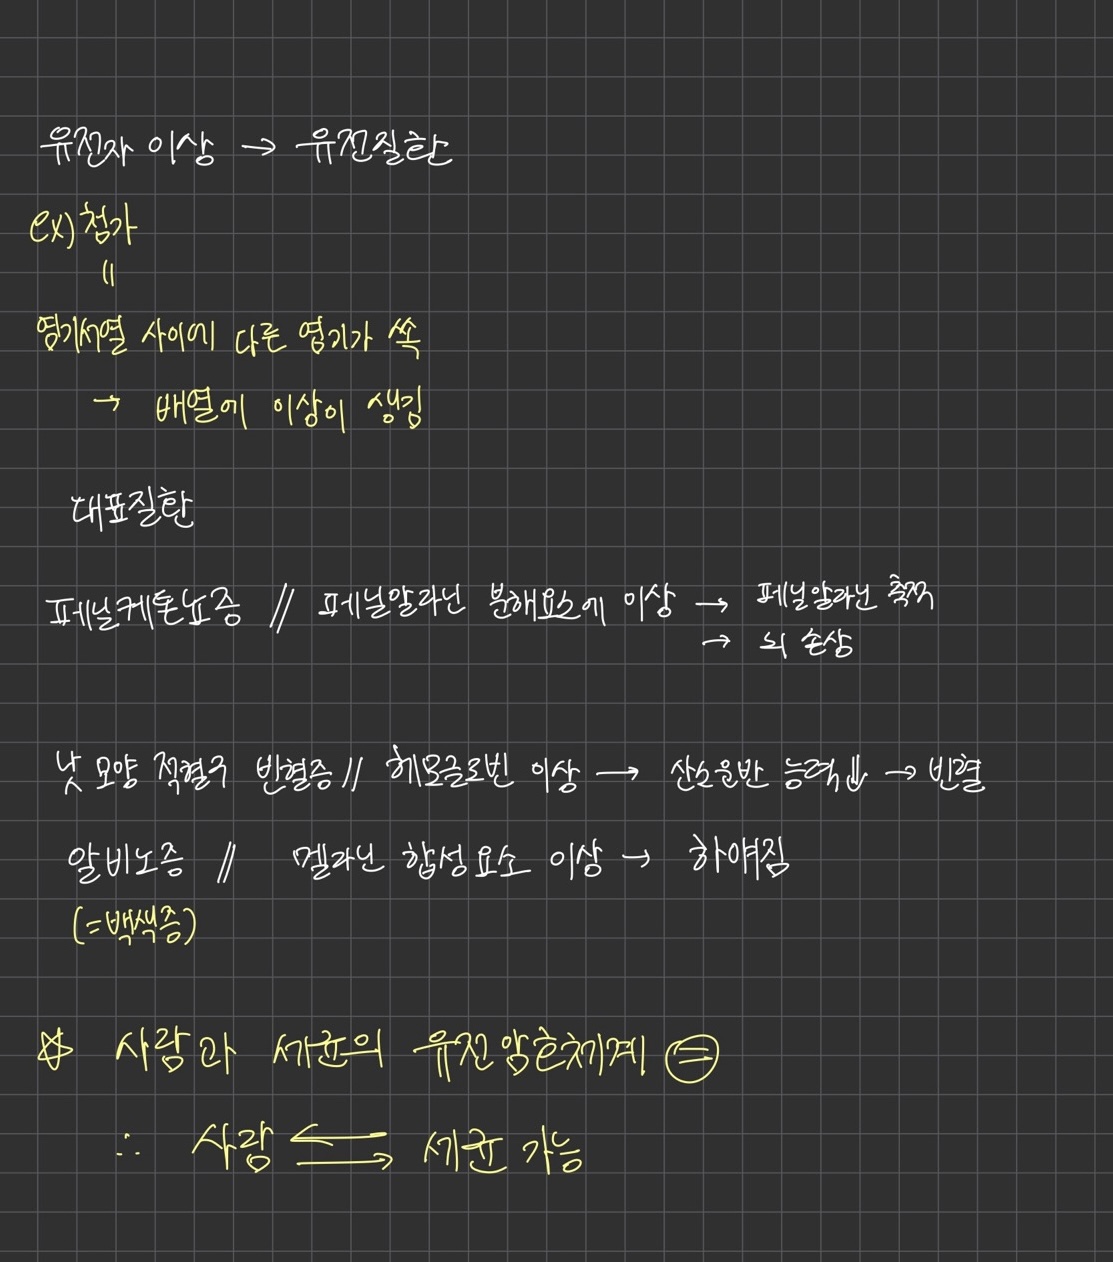 유전자 이상 → 유전질환
ex) 첨가
=
염기서열 사이에 다른 염기가 쏙
→ 배열에 이상이 생김
대표질환
페닐케톤뇨증 // 페닐알라닌 분해요소에 이상 → 페닐알라닌 축적
→ 뇌 손상
낫 모양 적혈구 빈혈증 // 헤모글로빈 이상 → 산소운반 능력↓ → 빈혈
알비노증 // 멜라닌 합성요소 이상 → 하얘짐
(=백색증)
☆ 사람과 세균의 유전암호체계 =
∴ 사람 ⇄ 세균 가능